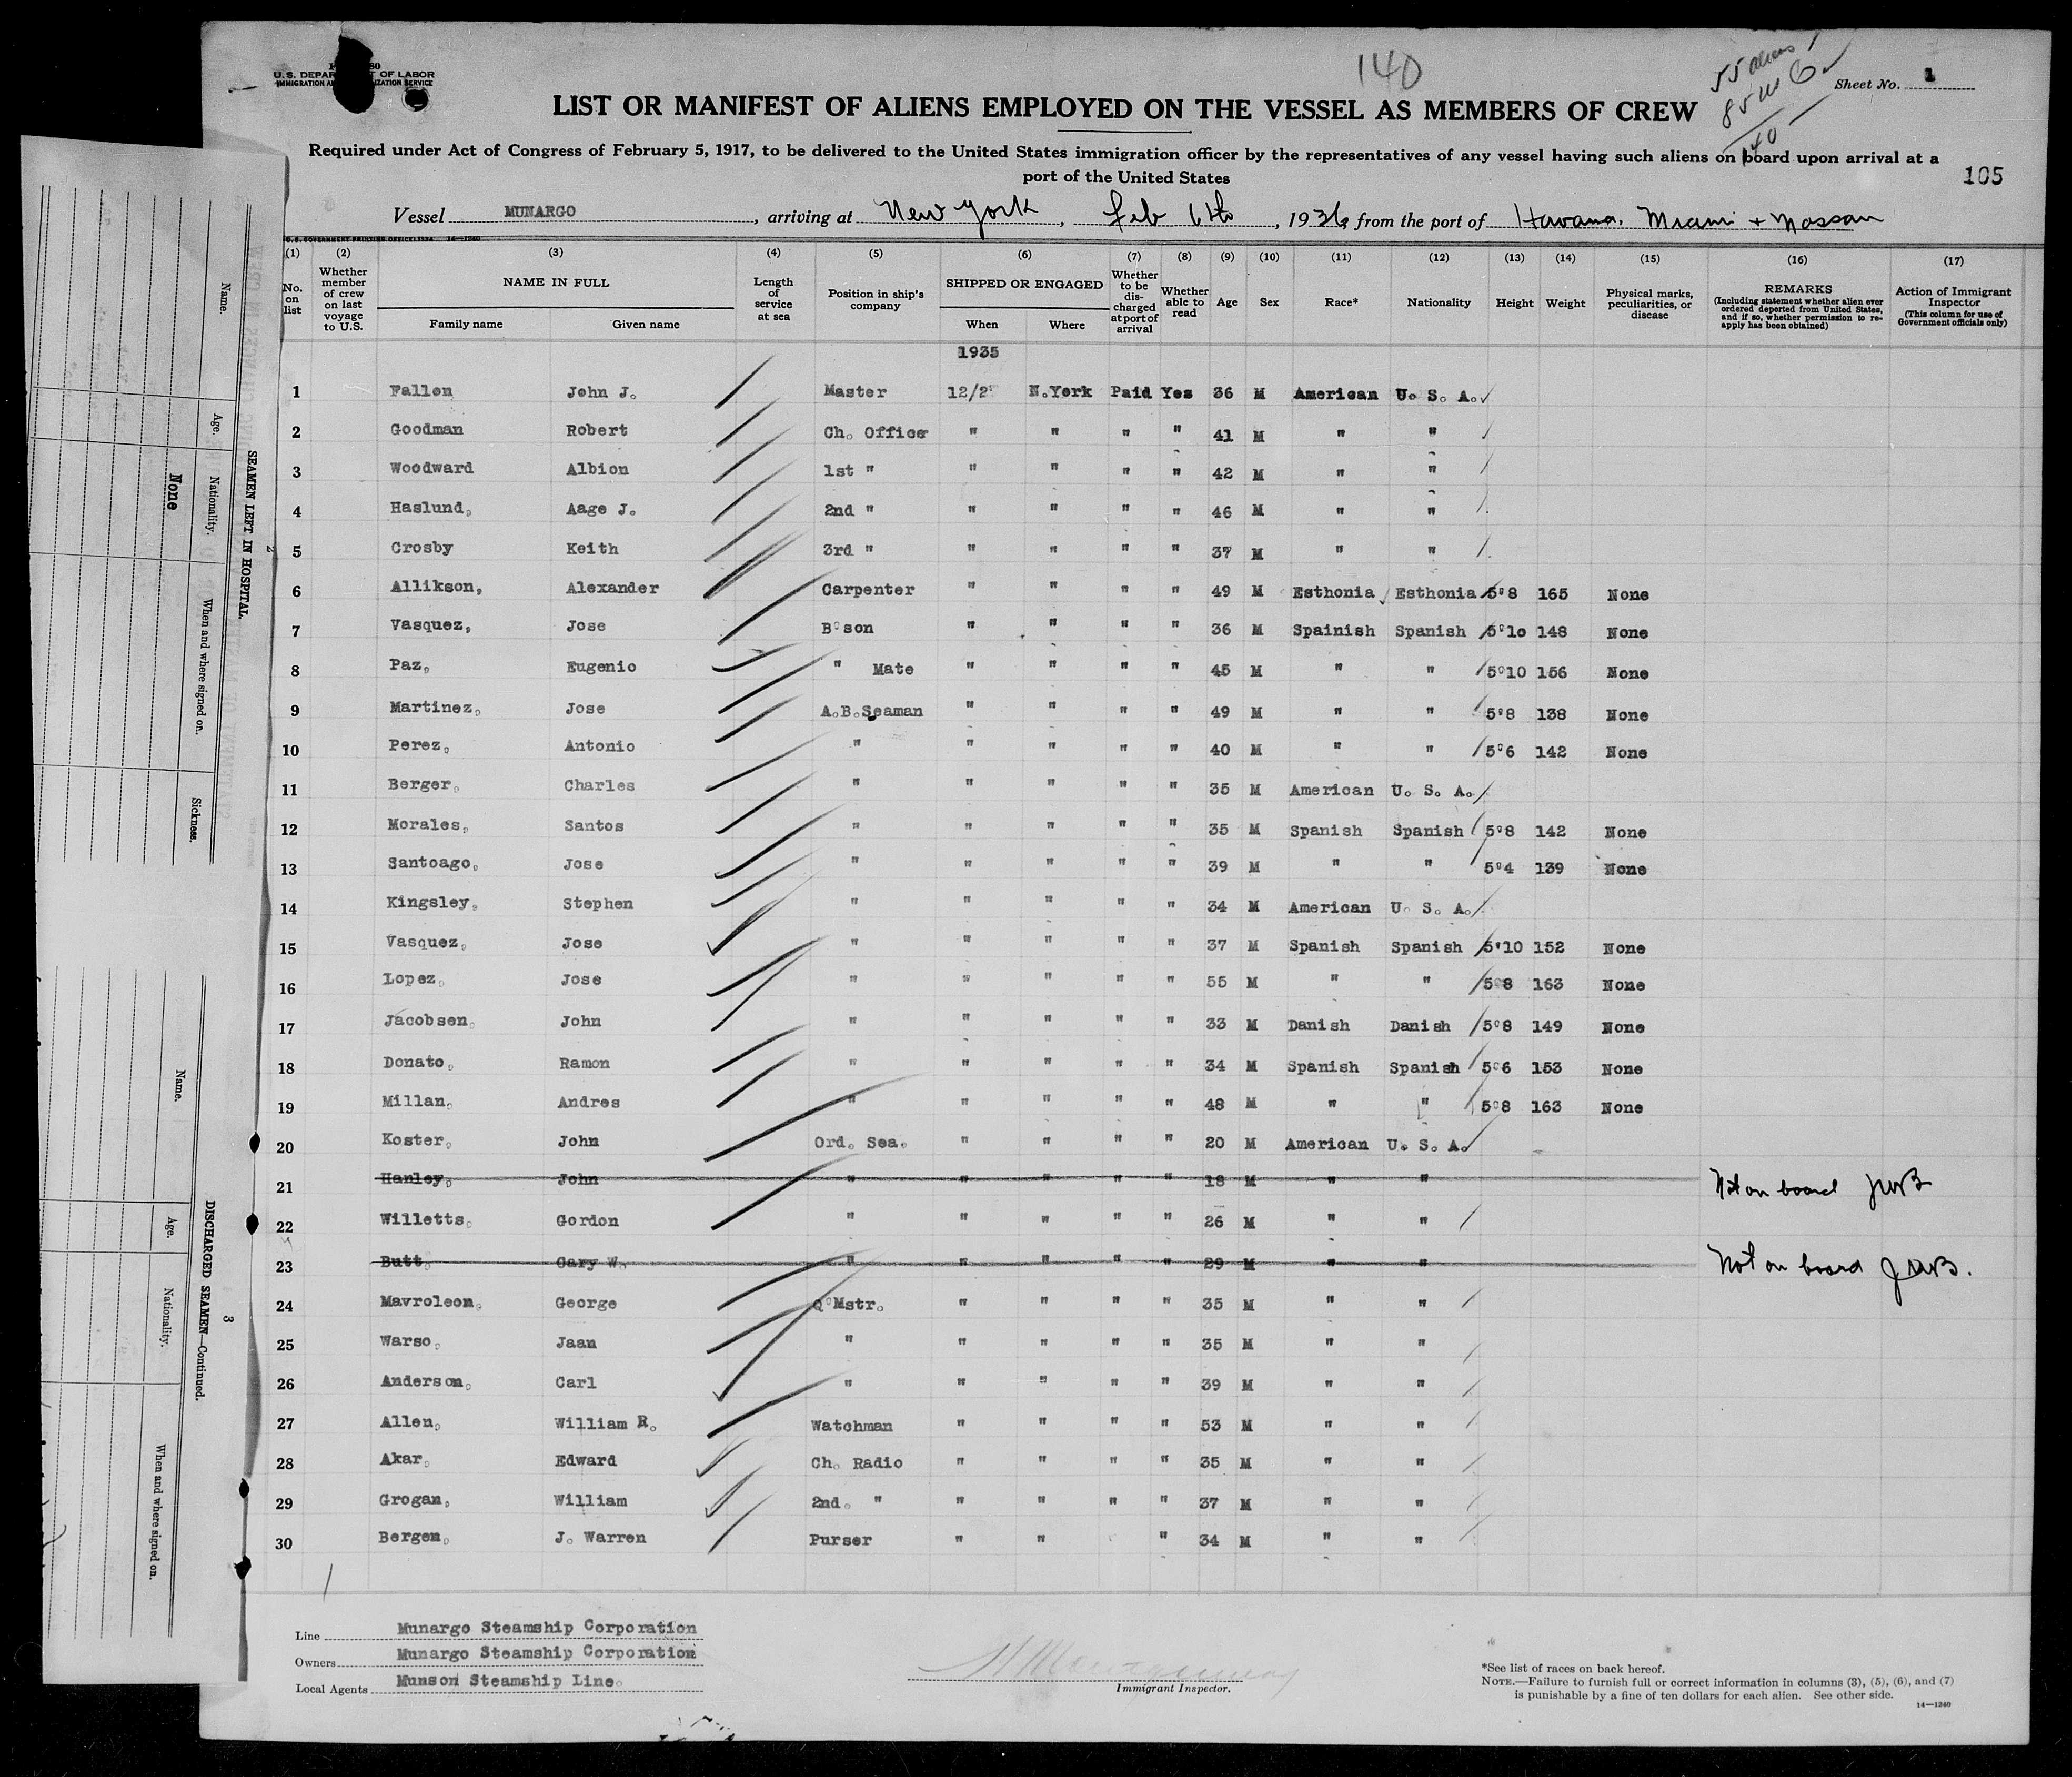 140
55 aliens
85 US
140
U.S. DEPARTMENT OF LABOR
IMMIGRATION AND NATURALIZATION SERVICE
Sheet No. 1
LIST OR MANIFEST OF ALIENS EMPLOYED ON THE VESSEL AS MEMBERS OF CREW
Required under Act of Congress of February 5, 1917, to be delivered to the United States immigration officer by the representatives of any vessel having such aliens on board upon arrival at a
port of the United States
105
Vessel MUNARGO, arriving at New York, Feb 6th, 1936, from the port of Havana, Miami + Nassau
U.S. GOVERNMENT PRINTING OFFICE: 1934 14—1240
(1) (2) (3) (4) (5) (6) (7) (8) (9) (10) (11) (12) (13) (14) (15) (16) (17)
No. on list
Whether member of crew on last voyage to U.S.
NAME IN FULL
Family name Given name
Length of service at sea
Position in ship's company
SHIPPED OR ENGAGED
When Where
Whether to be discharged at port of arrival
Whether able to read
Age
Sex
Race*
Nationality
Height
Weight
Physical marks, peculiarities, or disease
REMARKS
(Including statement whether alien ever ordered deported from United States, and if so, whether permission to reapply has been obtained)
Action of Immigrant Inspector
(This column for use of Government officials only)
1935
1 Fallon John J. Master 12/2 N.York Paid Yes 36 M American U. S. A.
2 Goodman Robert Ch. Officer " " " " 41 M " "
3 Woodward Albion 1st " " " " " 42 M " "
4 Haslund, Aage J. 2nd " " " " " 46 M " "
5 Crosby Keith 3rd " " " " " 37 M " "
6 Allikson, Alexander Carpenter " " " " 49 M Esthonia Esthonia 5'8 165 None
7 Vasquez, Jose B'son " " " " 36 M Spainish Spanish 5'10 148 None
8 Paz, Eugenio " Mate " " " " 45 M " " 5'10 156 None
9 Martinez, Jose A.B.Seaman " " " " 49 M " " 5'8 138 None
10 Perez, Antonio " " " " " 40 M " " 5'6 142 None
11 Berger, Charles " " " " " 35 M American U. S. A.
12 Morales, Santos " " " " " 35 M Spanish Spanish 5'8 142 None
13 Santoago, Jose " " " " " 39 M " " 5'4 139 None
14 Kingsley, Stephen " " " " " 34 M American U. S. A.
15 Vasquez, Jose " " " " " 37 M Spanish Spanish 5'10 152 None
16 Lopez, Jose " " " " " 55 M " " 5'8 163 None
17 Jacobsen, John " " " " " 33 M Danish Danish 5'8 149 None
18 Donato, Ramon " " " " " 34 M Spanish Spanish 5'6 153 None
19 Millan, Andres " " " " " 48 M " " 5'8 163 None
20 Koster, John Ord. Sea. " " " " 20 M American U. S. A.
21 Hanley, John " " " " " 18 M " " Not on board JWB
22 Willetts, Gordon " " " " " 26 M " "
23 Butt, Gary W. " " " " " 29 M " " Not on board JWB.
24 Mavroleon, George Q'Mstr. " " " " 35 M " "
25 Warso, Jaan " " " " " 35 M " "
26 Anderson, Carl " " " " " 39 M " "
27 Allen, William R. Watchman " " " " 53 M " "
28 Akar, Edward Ch. Radio " " " " 35 M " "
29 Grogan, William 2nd. " " " " " 37 M " "
30 Bergen, J. Warren Purser " " " 34 M " "
Line Munargo Steamship Corporation
Owners Munargo Steamship Corporation
Local Agents Munson Steamship Line.
Immigrant Inspector.
*See list of races on back hereof.
NOTE.—Failure to furnish full or correct information in columns (3), (5), (6), and (7)
is punishable by a fine of ten dollars for each alien. See other side.
14—1240
SEAMEN LEFT IN HOSPITAL.
2
Name.
Age.
Nationality.
When and where signed on.
Sickness.
None
DISCHARGED SEAMEN—Continued.
3
Name.
Age.
Nationality.
When and where signed on.